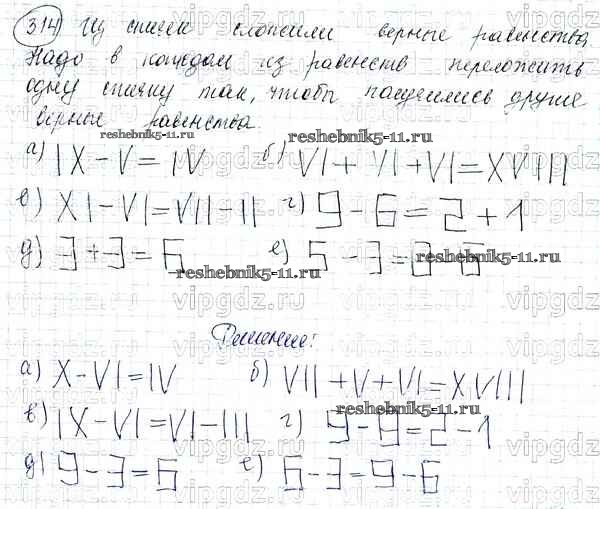 314) Из спичек сложили верные равенства.
Надо в каждом из равенств переложить
одну спичку так, чтобы получились другие
верные равенства.
reshebnik5-11.ru reshebnik5-11.ru
а) IX - V = IV б) VI + VI + VI = XVIII
в) XI - VI = VII - II г) 9 - 6 = 2 + 1
д) 3 + 3 = 6 е) 5 - 3 = 8 - 6
reshebnik5-11.ru
Решение:
а) X - VI = IV б) VII + V + VI = XVIII
reshebnik5-11.ru
в) IX - VI = VI - III г) 9 - 9 = 2 - 1
д) 9 - 3 = 6 е) 6 - 3 = 9 - 6
vipgdz.ru